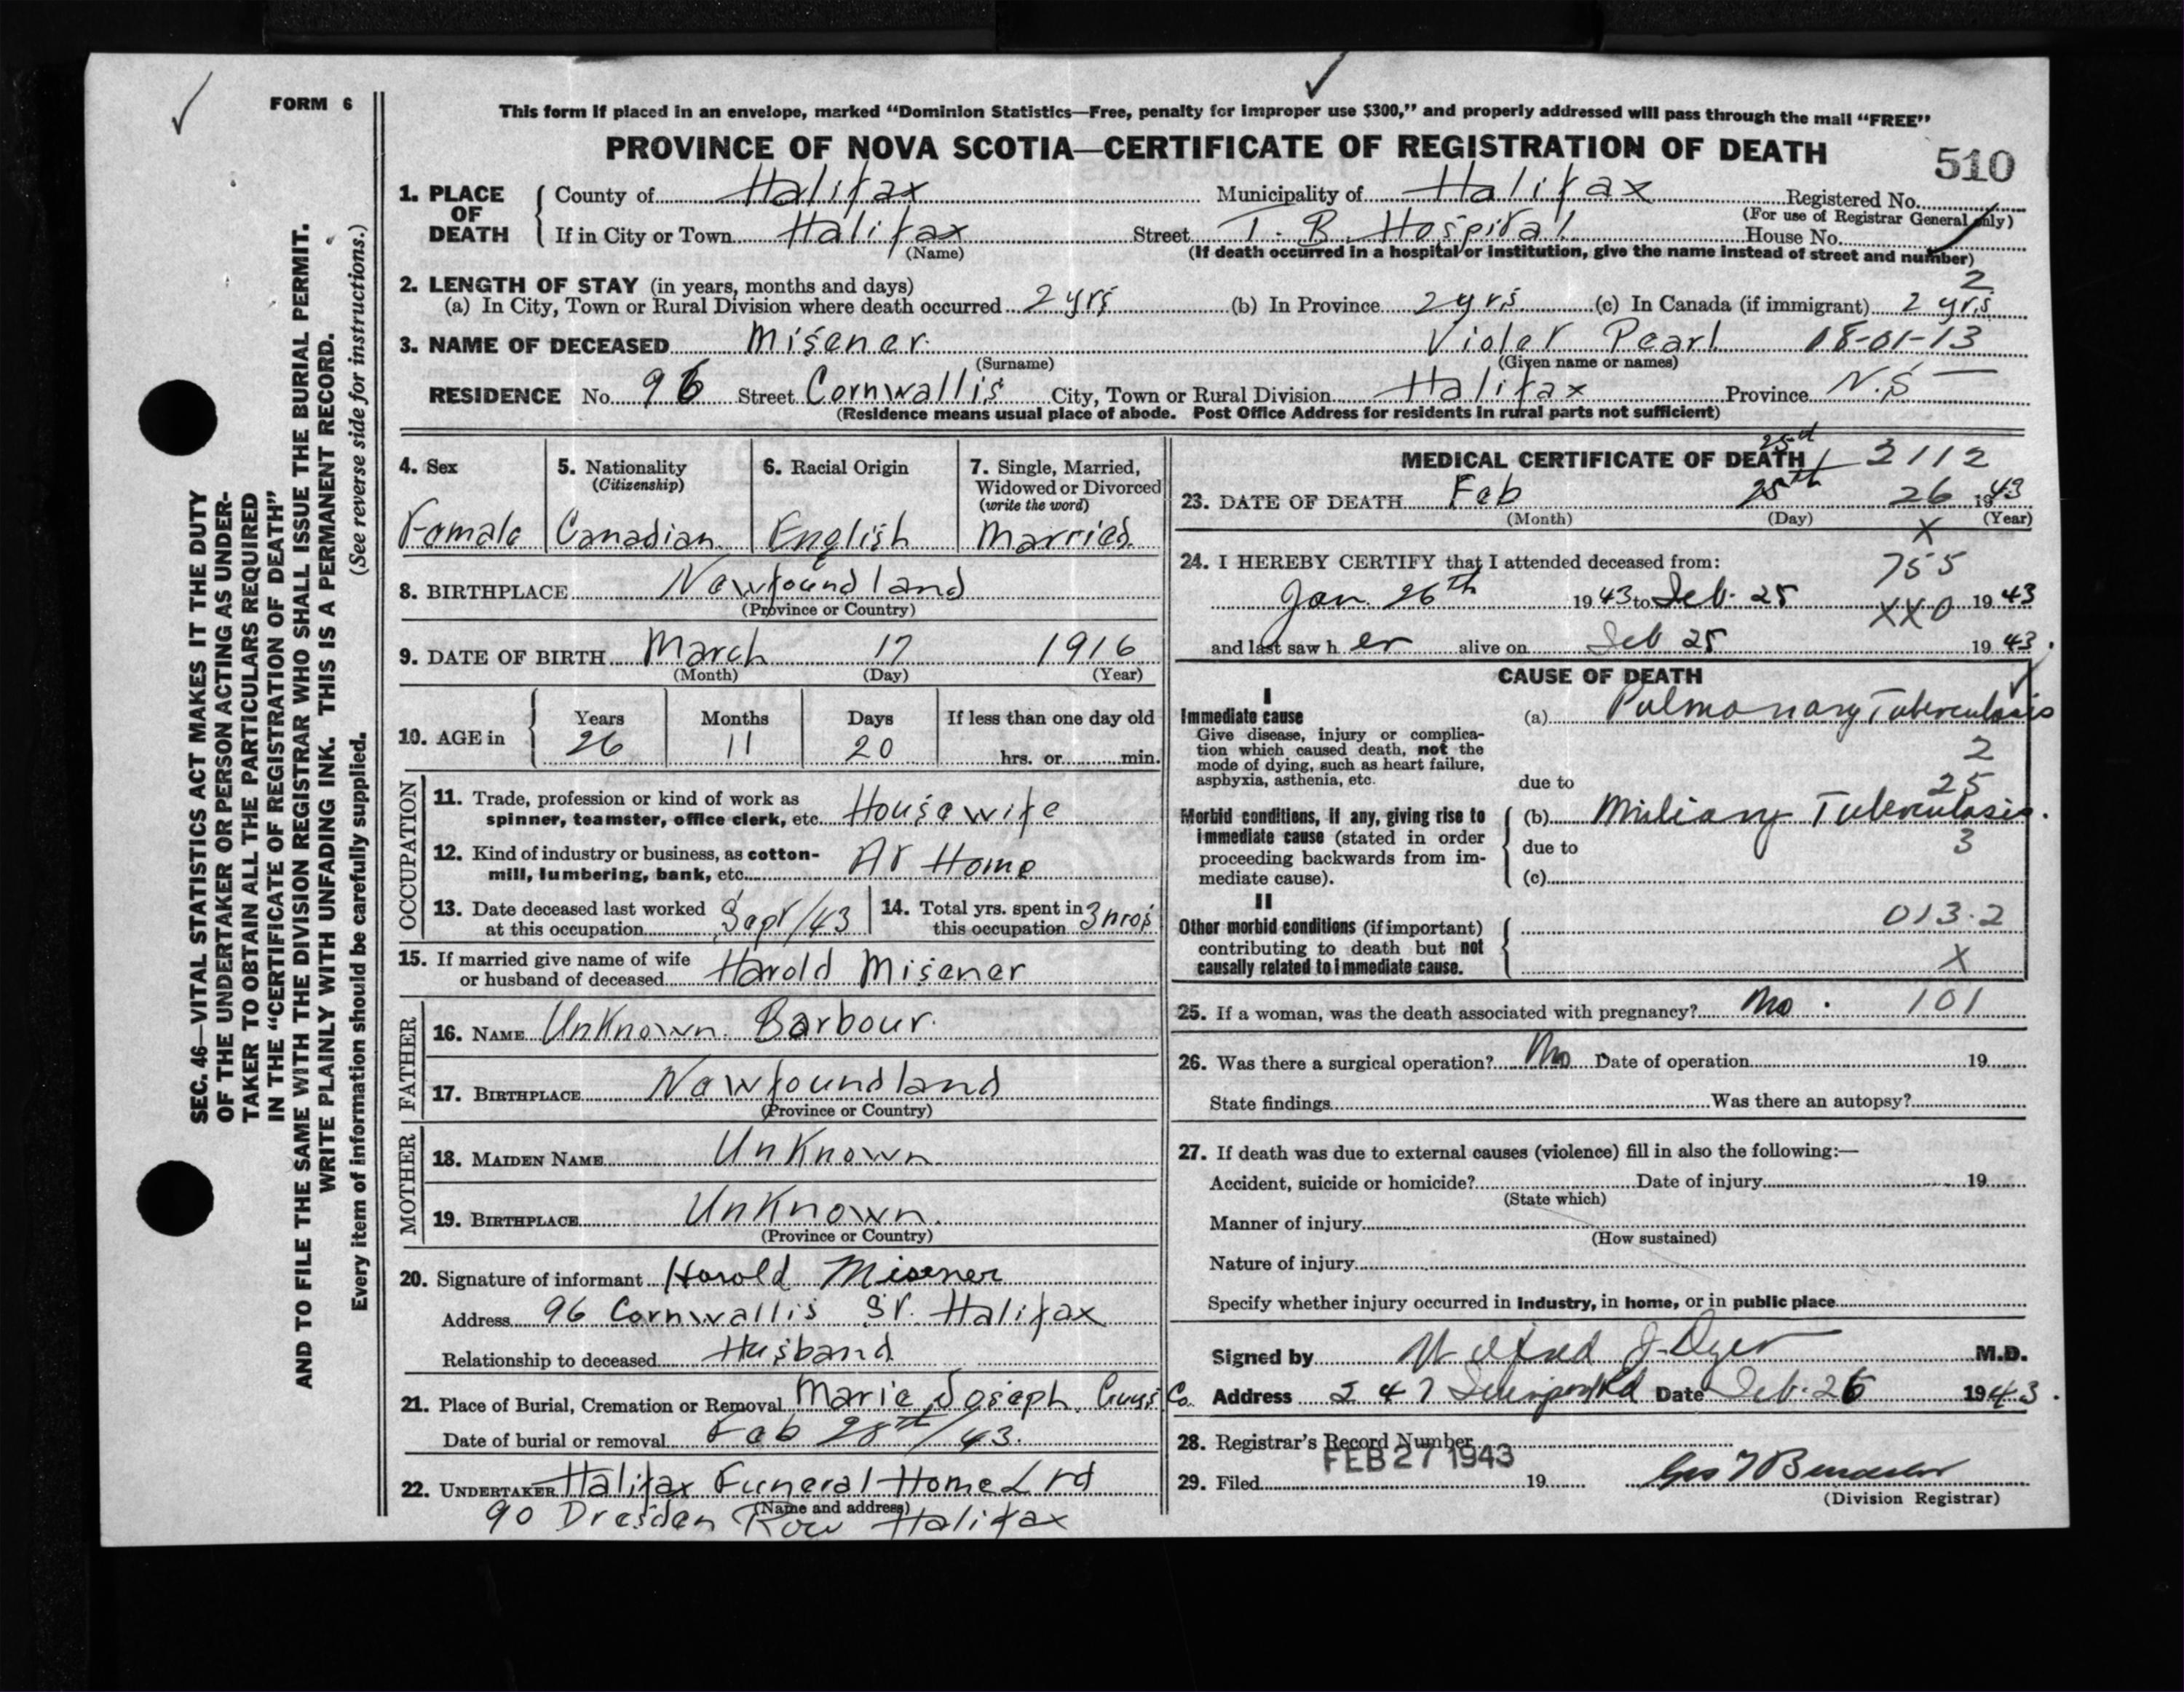 FORM 6
This form if placed in an envelope, marked “Dominion Statistics—Free, penalty for improper use $300,” and properly addressed will pass through the mail “FREE”
PROVINCE OF NOVA SCOTIA—CERTIFICATE OF REGISTRATION OF DEATH
510
1. PLACE OF DEATH
County of Halifax Municipality of Halifax Registered No.
(For use of Registrar General only)
If in City or Town Halifax Street T. B. Hospital House No.
(Name) (If death occurred in a hospital or institution, give the name instead of street and number)
2. LENGTH OF STAY (in years, months and days) 2
(a) In City, Town or Rural Division where death occurred 2 yrs (b) In Province 2 yrs (c) In Canada (if immigrant) 2 yrs
3. NAME OF DECEASED Misener Violet Pearl 08-01-13
(Surname) (Given name or names)
RESIDENCE No. 96 Street Cornwallis City, Town or Rural Division Halifax Province N.S
(Residence means usual place of abode. Post Office Address for residents in rural parts not sufficient)
4. Sex Female
5. Nationality (Citizenship) Canadian
6. Racial Origin English
7. Single, Married, Widowed or Divorced (write the word) Married
8. BIRTHPLACE Newfoundland
(Province or Country)
9. DATE OF BIRTH March 17 1916
(Month) (Day) (Year)
10. AGE in Years 26 Months 11 Days 20 If less than one day old hrs. or min.
OCCUPATION
11. Trade, profession or kind of work as spinner, teamster, office clerk, etc. Housewife
12. Kind of industry or business, as cotton-mill, lumbering, bank, etc. At Home
13. Date deceased last worked at this occupation Sept/43
14. Total yrs. spent in this occupation 3
15. If married give name of wife or husband of deceased Harold Misener
FATHER
16. NAME Unknown Barbour
17. BIRTHPLACE Newfoundland
(Province or Country)
MOTHER
18. MAIDEN NAME Unknown
19. BIRTHPLACE Unknown
(Province or Country)
20. Signature of informant Harold Misener
Address 96 Cornwallis St. Halifax
Relationship to deceased Husband
21. Place of Burial, Cremation or Removal Marie Joseph Guys Co.
Date of burial or removal Feb 28th/43.
22. UNDERTAKER Halifax Funeral Home Ltd
(Name and address)
90 Dresden Row Halifax
MEDICAL CERTIFICATE OF DEATH 25th 2112
23. DATE OF DEATH Feb 25th 26 1943
(Month) (Day) (Year)
X
24. I HEREBY CERTIFY that I attended deceased from: 755
Jan. 26th 1943 to Feb. 25 XX0 1943
and last saw her alive on Feb 25 1943.
CAUSE OF DEATH
I
Immediate cause
Give disease, injury or complication which caused death, not the mode of dying, such as heart failure, asphyxia, asthenia, etc.
(a) Pulmonary Tuberculosis
2
due to 25
Morbid conditions, if any, giving rise to immediate cause (stated in order proceeding backwards from immediate cause).
(b) Miliary Tuberculosis.
due to 3
(c)
II
Other morbid conditions (if important) contributing to death but not causally related to immediate cause.
013.2
X
25. If a woman, was the death associated with pregnancy? No. 101
26. Was there a surgical operation? No Date of operation 19
State findings Was there an autopsy?
27. If death was due to external causes (violence) fill in also the following:—
Accident, suicide or homicide? Date of injury 19
(State which)
Manner of injury
(How sustained)
Nature of injury
Specify whether injury occurred in industry, in home, or in public place
Signed by Wilfred J. Dyer M.D.
Address 247 Date Feb. 26 1943.
28. Registrar’s Record Number
29. Filed FEB 27 1943 19
(Division Registrar)
SEC. 46—VITAL STATISTICS ACT MAKES IT THE DUTY
OF THE UNDERTAKER OR PERSON ACTING AS UNDER-
TAKER TO OBTAIN ALL THE PARTICULARS REQUIRED
IN THE “CERTIFICATE OF REGISTRATION OF DEATH”
AND TO FILE THE SAME WITH THE DIVISION REGISTRAR WHO SHALL ISSUE THE BURIAL PERMIT.
WRITE PLAINLY WITH UNFADING INK. THIS IS A PERMANENT RECORD.
Every item of information should be carefully supplied. (See reverse side for instructions.)